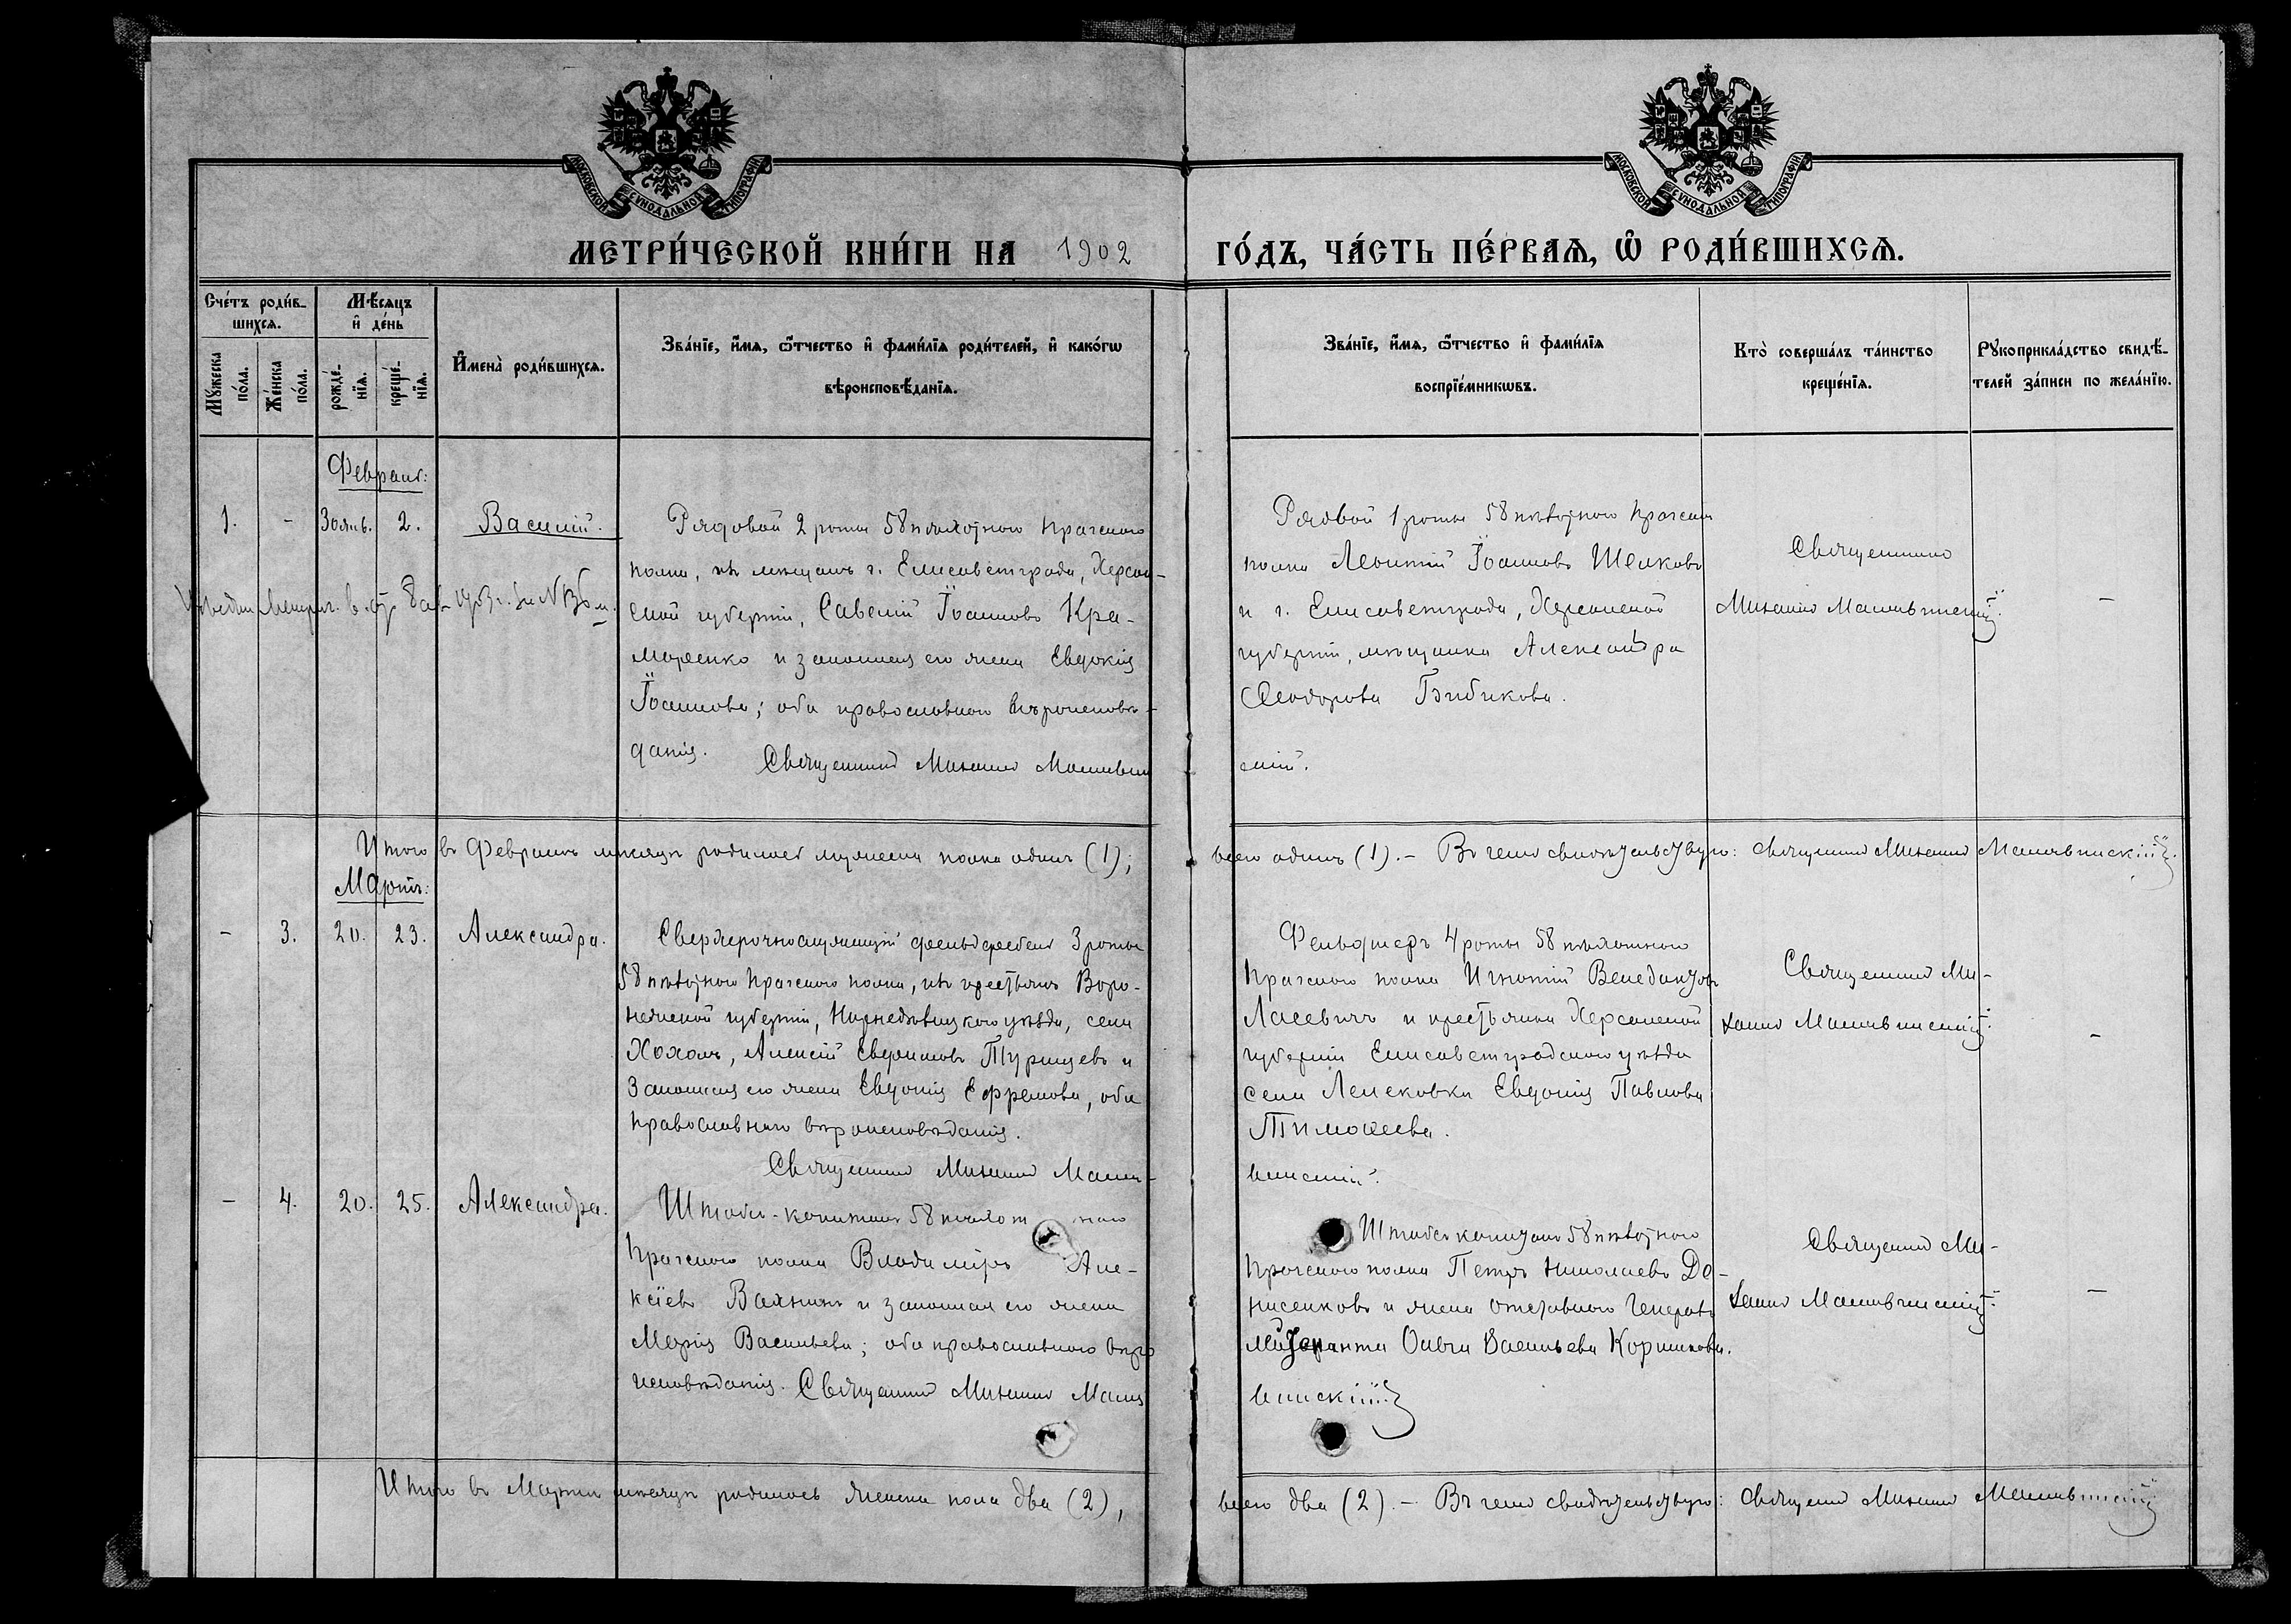 МОСКОВСКОЙ СѴНОДАЛЬНОЙ ТИПОГРАФІИ
МОСКОВСКОЙ СѴНОДАЛЬНОЙ ТИПОГРАФІИ
МЕТРИ́ЧЕСКОЙ КНИ́ГИ НА 1902
ГО́ДЪ, ЧА́СТЬ ПЕ́РВАѦ, Ѡ҆ РОДИ́ВШИХСѦ.
Сче́тъ роди́в-
шихсѧ.
Мѣ́сѧцъ
и҆ де́нь
Мꙋ́жеска
по́ла.
Же́нска
по́ла.
рожде́-
нїѧ.
креще́-
нїѧ.
И҆мена̀ роди́вшихсѧ.
Зва́нїе, и҆́мѧ, ѻ҆́тчество и҆ фами́лїѧ роди́телей, и҆ како́гѡ
вѣроисповѣ́данїѧ.
Зва́нїе, и҆́мѧ, ѻ҆́тчество и҆ фами́лїѧ
воспрїе́мникѡвъ.
Кто̀ соверша́лъ та́инство
креще́нїѧ.
Рꙋкоприкла́дство свидѣ́-
телей за́писи по жела́нїю.
Февраль:
1. - 30 янв. 2. Василій.
Рядовой 2 роты 58 пѣхотнаго Прагскаго
полка, изъ мѣщанъ г. Елисаветграда, Херсон-
ской губерніи, Савелій Іоанновъ Кра-
маренко и законная его жена Евдокія
Іоаннова; оба православнаго вѣроисповѣ-
данія.
Священникъ Михаилъ Машев
Рядовой 1 роты 58 пѣхотнаго Прагскаго
полка Леонтій Іоанновъ Шелковъ
и г. Елисаветграда, Херсонской
губерніи, мѣщанка Александра
Ѳеодорова Бибикова.
скій.
Священникъ
Михаилъ
-
Итого въ Февралѣ мѣсяцѣ родилось мужеска пола одинъ (1);
всего одинъ (1). - Въ чемъ свидѣтельствую: Священникъ Михаилъ
Мартъ:
- 3. 20. 23. Александра.
Сверхсрочнослужащій фельдфебель 3 роты
58 пѣхотнаго Прагскаго полка, изъ крестьянъ Воро-
нежской губерніи, Нижнедѣвицкаго уѣзда, села
Хохолъ, Алексій Евфимовъ Турищевъ и
законная его жена Евдокія Ефремова, оба
православнаго вѣроисповѣданія.
Священникъ Михаилъ
Фельдшеръ 4 роты 58 пѣхотнаго
Прагскаго полка Игнатій Венедиктовъ
Ласевичъ и крестьянка Херсонской
губерніи Елисаветградскаго уѣзда
села Лелековки Евдокія Павлова
Тимоѳеева.
Священникъ Ми-
хаилъ
-
- 4. 20. 25. Александра.
Штабсъ-капитанъ 58 пѣхотнаго
Прагскаго полка Владиміръ Але-
ксіевъ Вахнинъ и законная его жена
Марія Васильева; оба православнаго вѣро
исповѣданія. Священникъ Михаилъ
Штабсъ капитанъ 58 пѣхотнаго
Прагскаго полка Петръ Николаевъ Де-
нисенковъ и жена отставного Генералъ
Ольга Васильева Коршикова.
Священникъ Ми-
хаилъ
-
Итого въ Мартѣ мѣсяцѣ родилось женска пола два (2),
всего два (2). - Въ чемъ свидѣтельствую: Священникъ Михаилъ